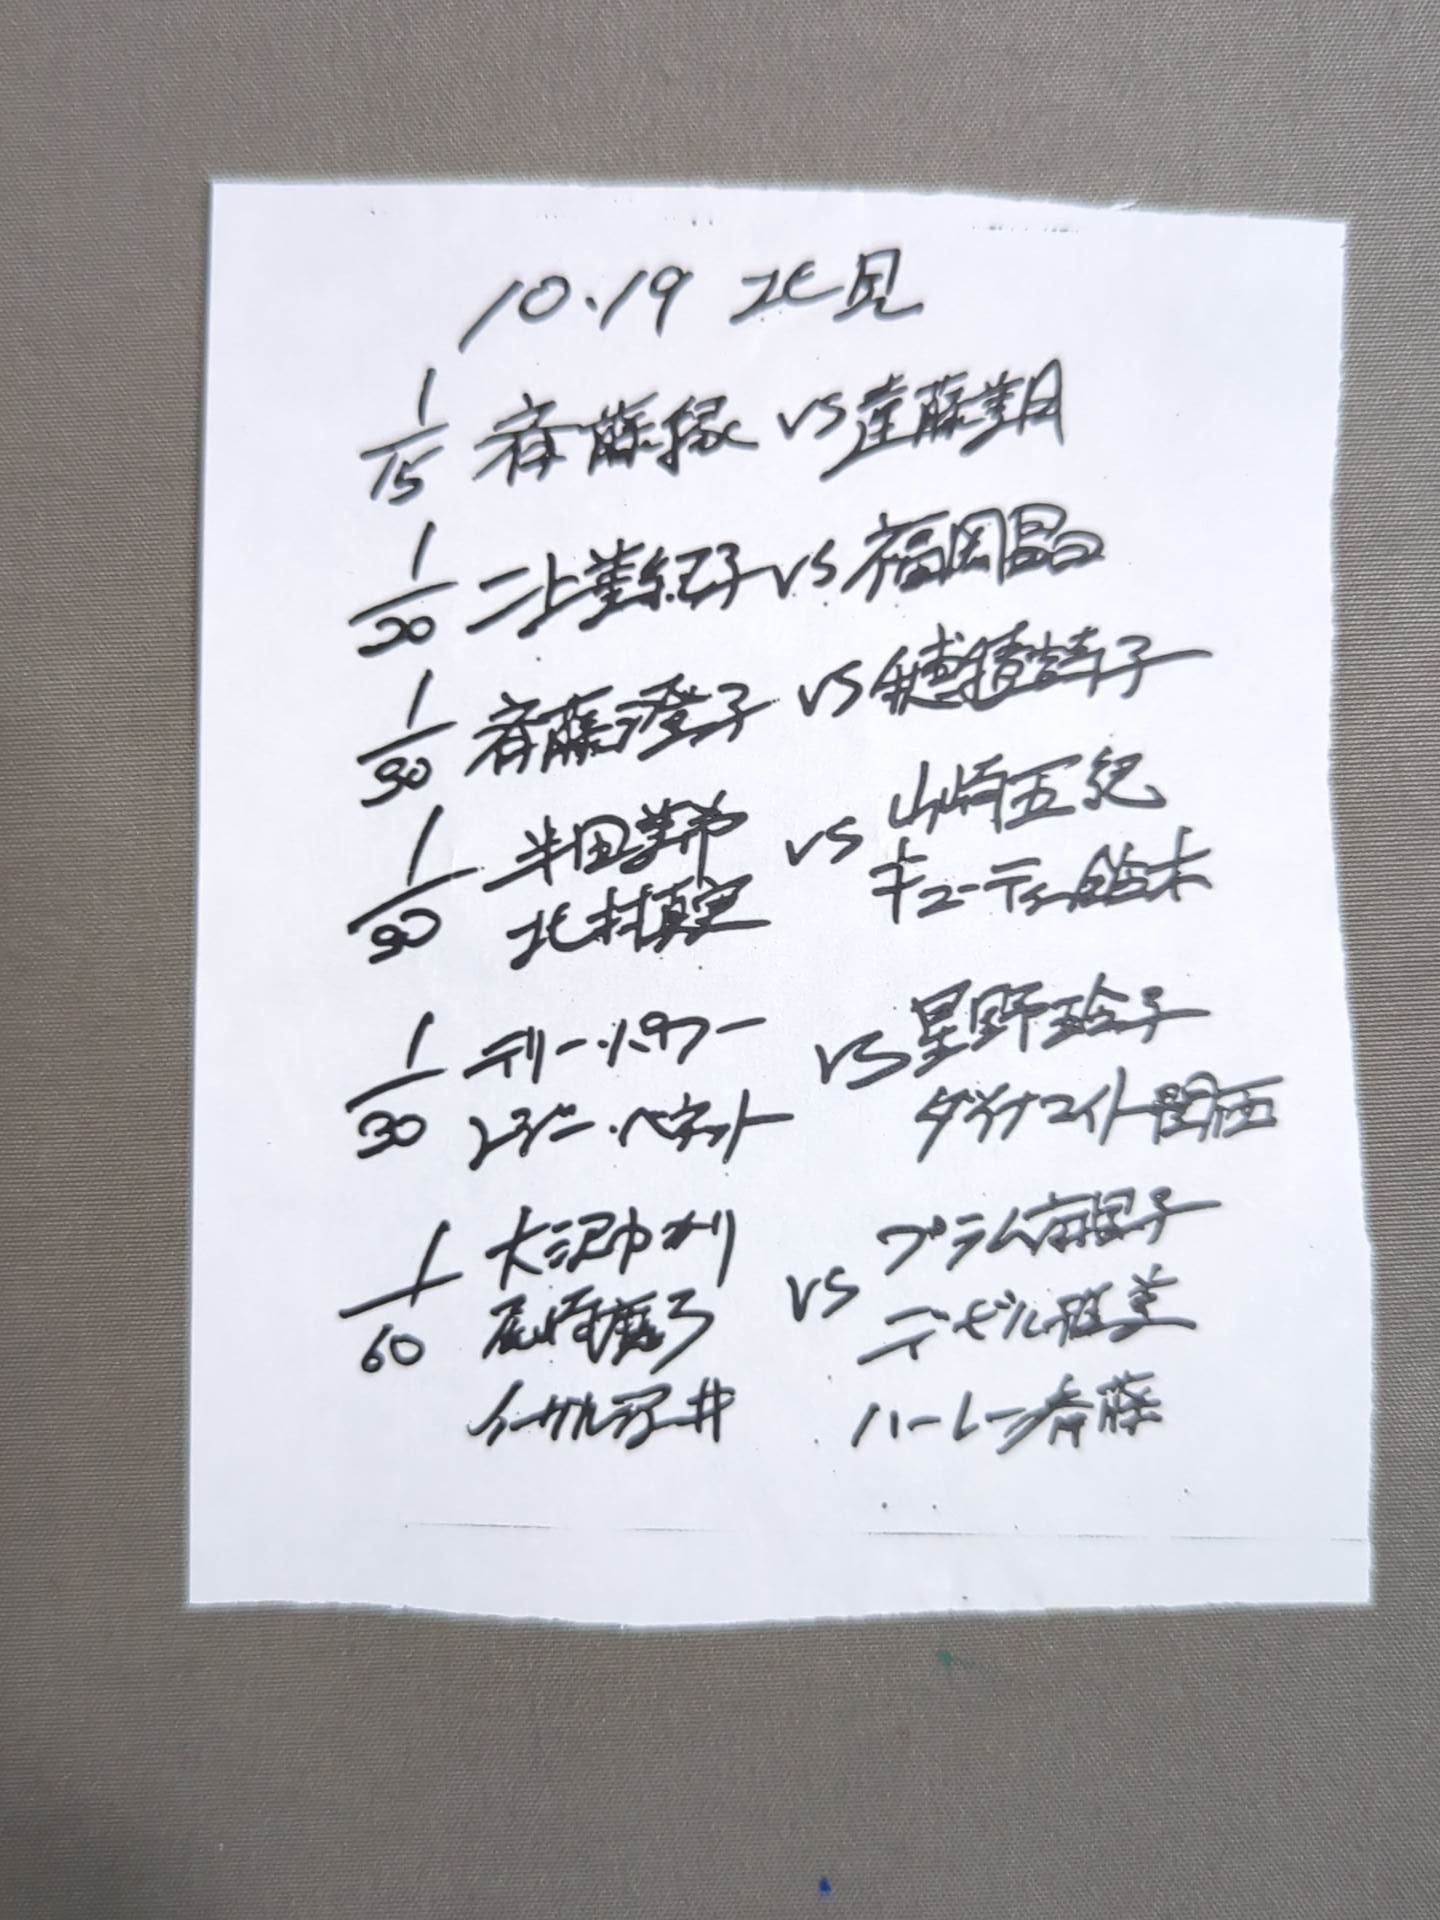 10.19 北見
1/15 斉藤縁 VS 遠藤美月
1/20 二上美紀子 VS 福岡晶
1/30 斉藤澄子 VS 穂積詩子
1/30 半田美希 VS 山崎五紀
北村真実 キューティー鈴木
1/30 テリー・パワー VS 星野玲子
レジー・ベネット ダイナマイト関西
1/60 大沢ゆかり VS プラム麻里子
尾崎魔弓 デビル雅美
イーグル沢井 ハーレー斉藤